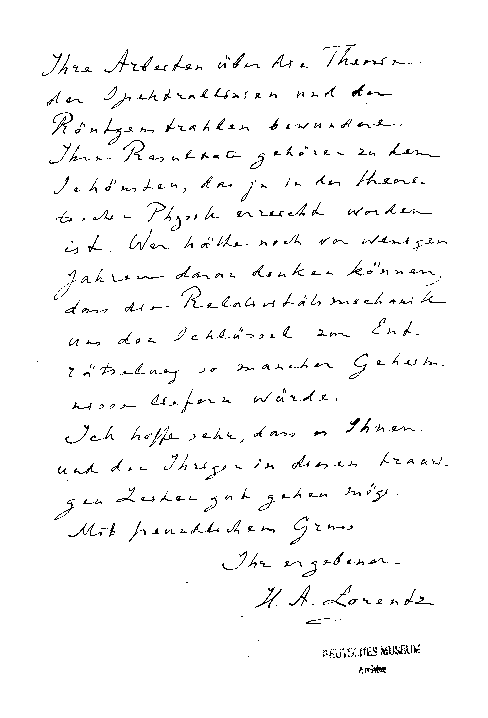 Ihre Arbeiten über die Theorie
der Spektrallinien und der
Röntgenstrahlen bewundere.
Ihre Resultate gehören zu dem
Schönsten, das je in der theore-
tischen Physik erreicht worden
ist. Wer hätte noch vor wenigen
Jahren daran denken können,
dass die Relativitätsmechanik
uns den Schlüssel zur Ent-
rätselung so mancher Geheim-
nisse liefern würde.
Ich hoffe sehr, dass es Ihnen
und den Ihrigen in diesen trauri-
gen Zeiten gut gehen möge.
Mit freundlichem Gruss
Ihr ergebener
H. A. Lorentz
DEUTSCHES MUSEUM
Archiv